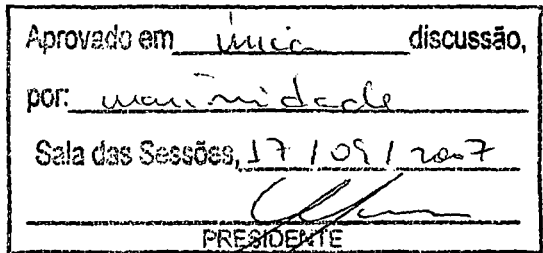 Aprovado em única discussão,
por: unanimidade
Sala das Sessões, 17 / 09 / 2007
PRESIDENTE